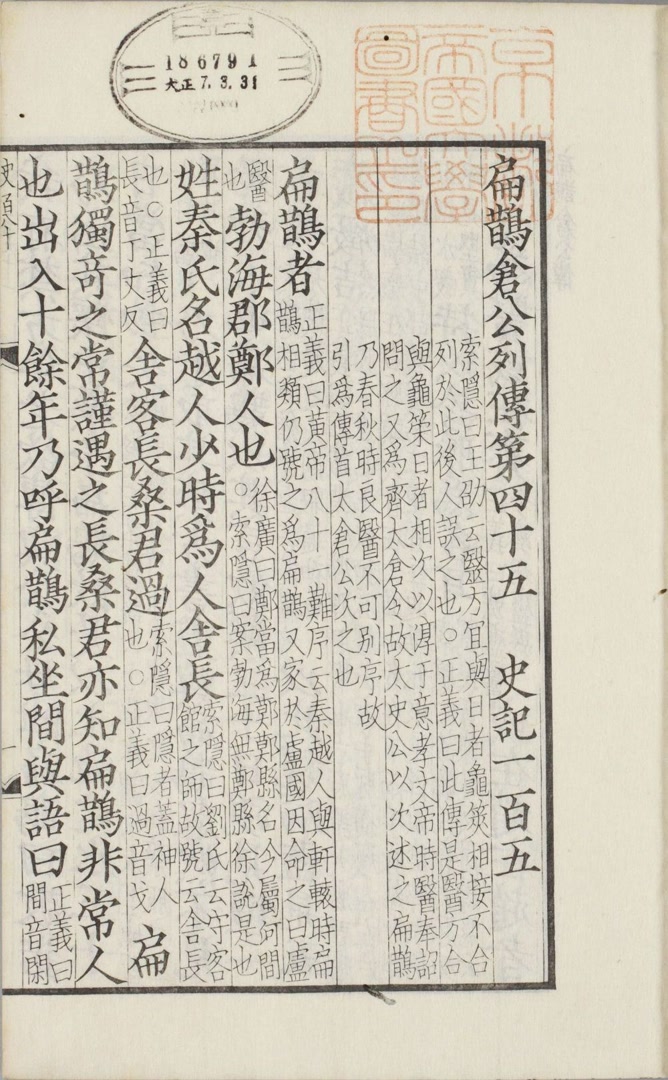 186791
大正7.3.31
京都
帝國大學
圖書之印
扁鵲倉公列傳第四十五 史記一百五
索隱曰王劭云毉方宜與日者龜筴相接不合
列於此後人誤之也○正義曰此傳是醫方合
與龜筞日者相次以淳于意孝文帝時醫奉詔
問之又爲齊太倉令故太史公以次述之扁鵲
乃春秋時良醫不可別序故
引爲傳首太倉公次之也
扁鵲者
正義曰黃帝八十一難序云秦越人與軒轅時扁
鵲相類仍號之爲扁鵲又家於盧國因命之曰盧
醫
也
勃海郡鄭人也
徐廣曰鄭當爲鄚鄚縣名今屬河間
○索隱曰案勃海無鄭縣徐說是也
姓秦氏名越人少時爲人舍長
索隱曰劉氏云守客
館之師故號云舍長
也○正義曰
長音丁丈反
舍客長桑君過
索隱曰隱者蓋神人
也○正義曰過音戈
扁
鵲獨奇之常謹遇之長桑君亦知扁鵲非常人
也出入十餘年乃呼扁鵲私坐間與語曰
正義曰
間音閑